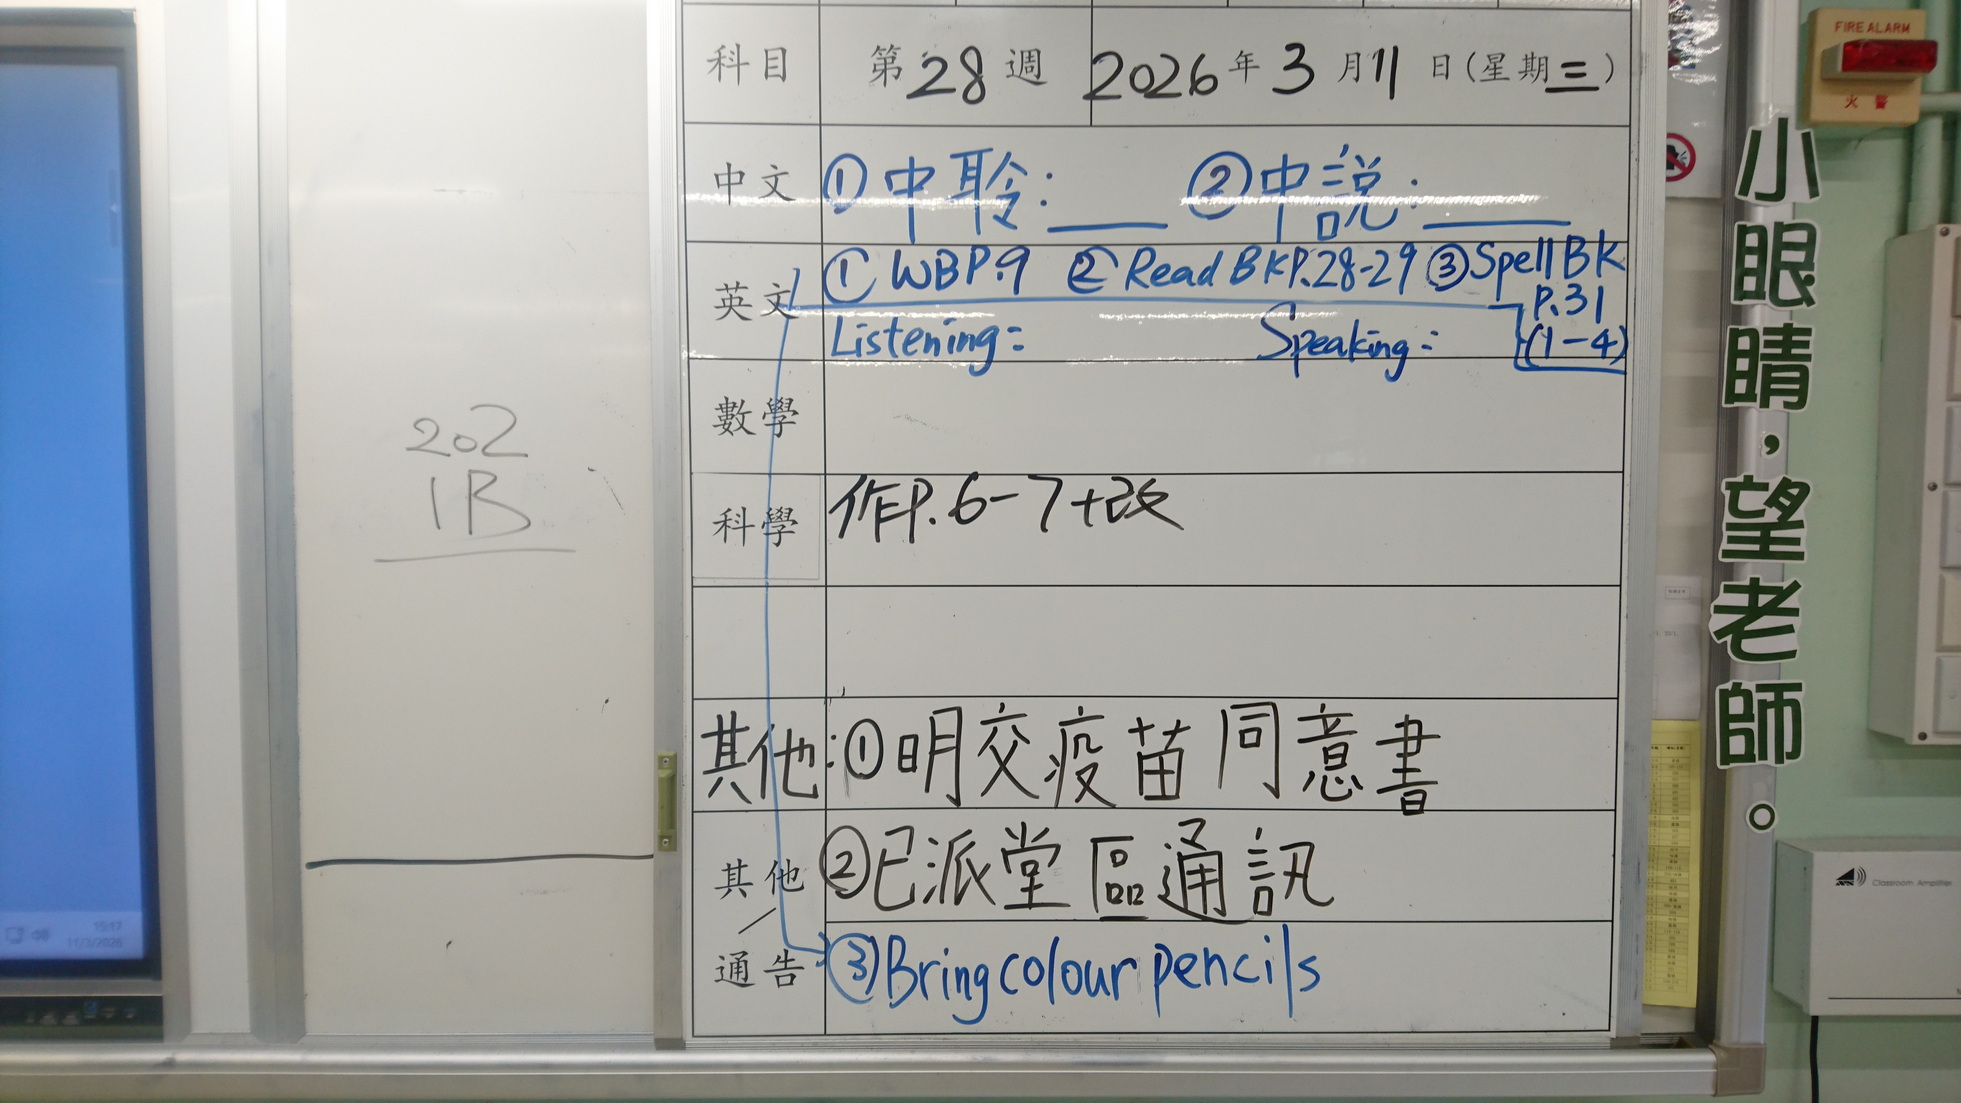 科目 第28週 2026年3月11日(星期三)
中文 ①中聆:___ ②中説:___
英文 ①WBP.9 ②Read BKP.28-29 ③Spell BK
P.31
(1-4)
Listening: Speaking:
數學
科學 作P.6-7+改
其他:①明交疫苗同意書
其他 ②已派堂區通訊
通告 ③Bring colour pencils
202
1B
小眼睛,望老師。
FIRE ALARM
火警
Classroom Amplifier
15:17
11/3/2026